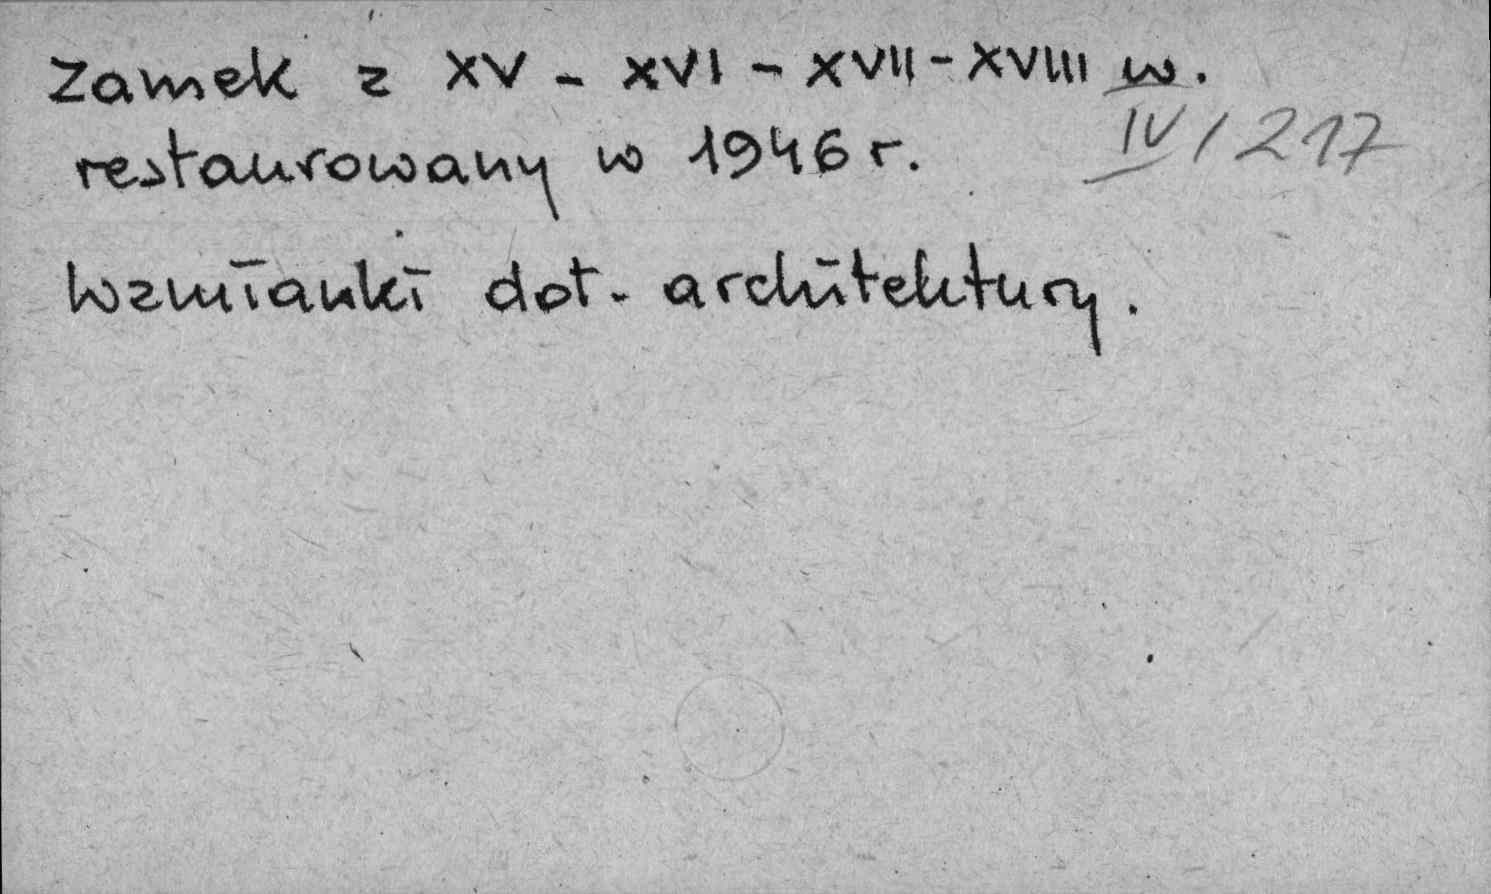 Zamek z XV - XVI - XVII - XVIII w.
IV/217
restaurowany w 1946 r.
Wzmianki dot. architektury.